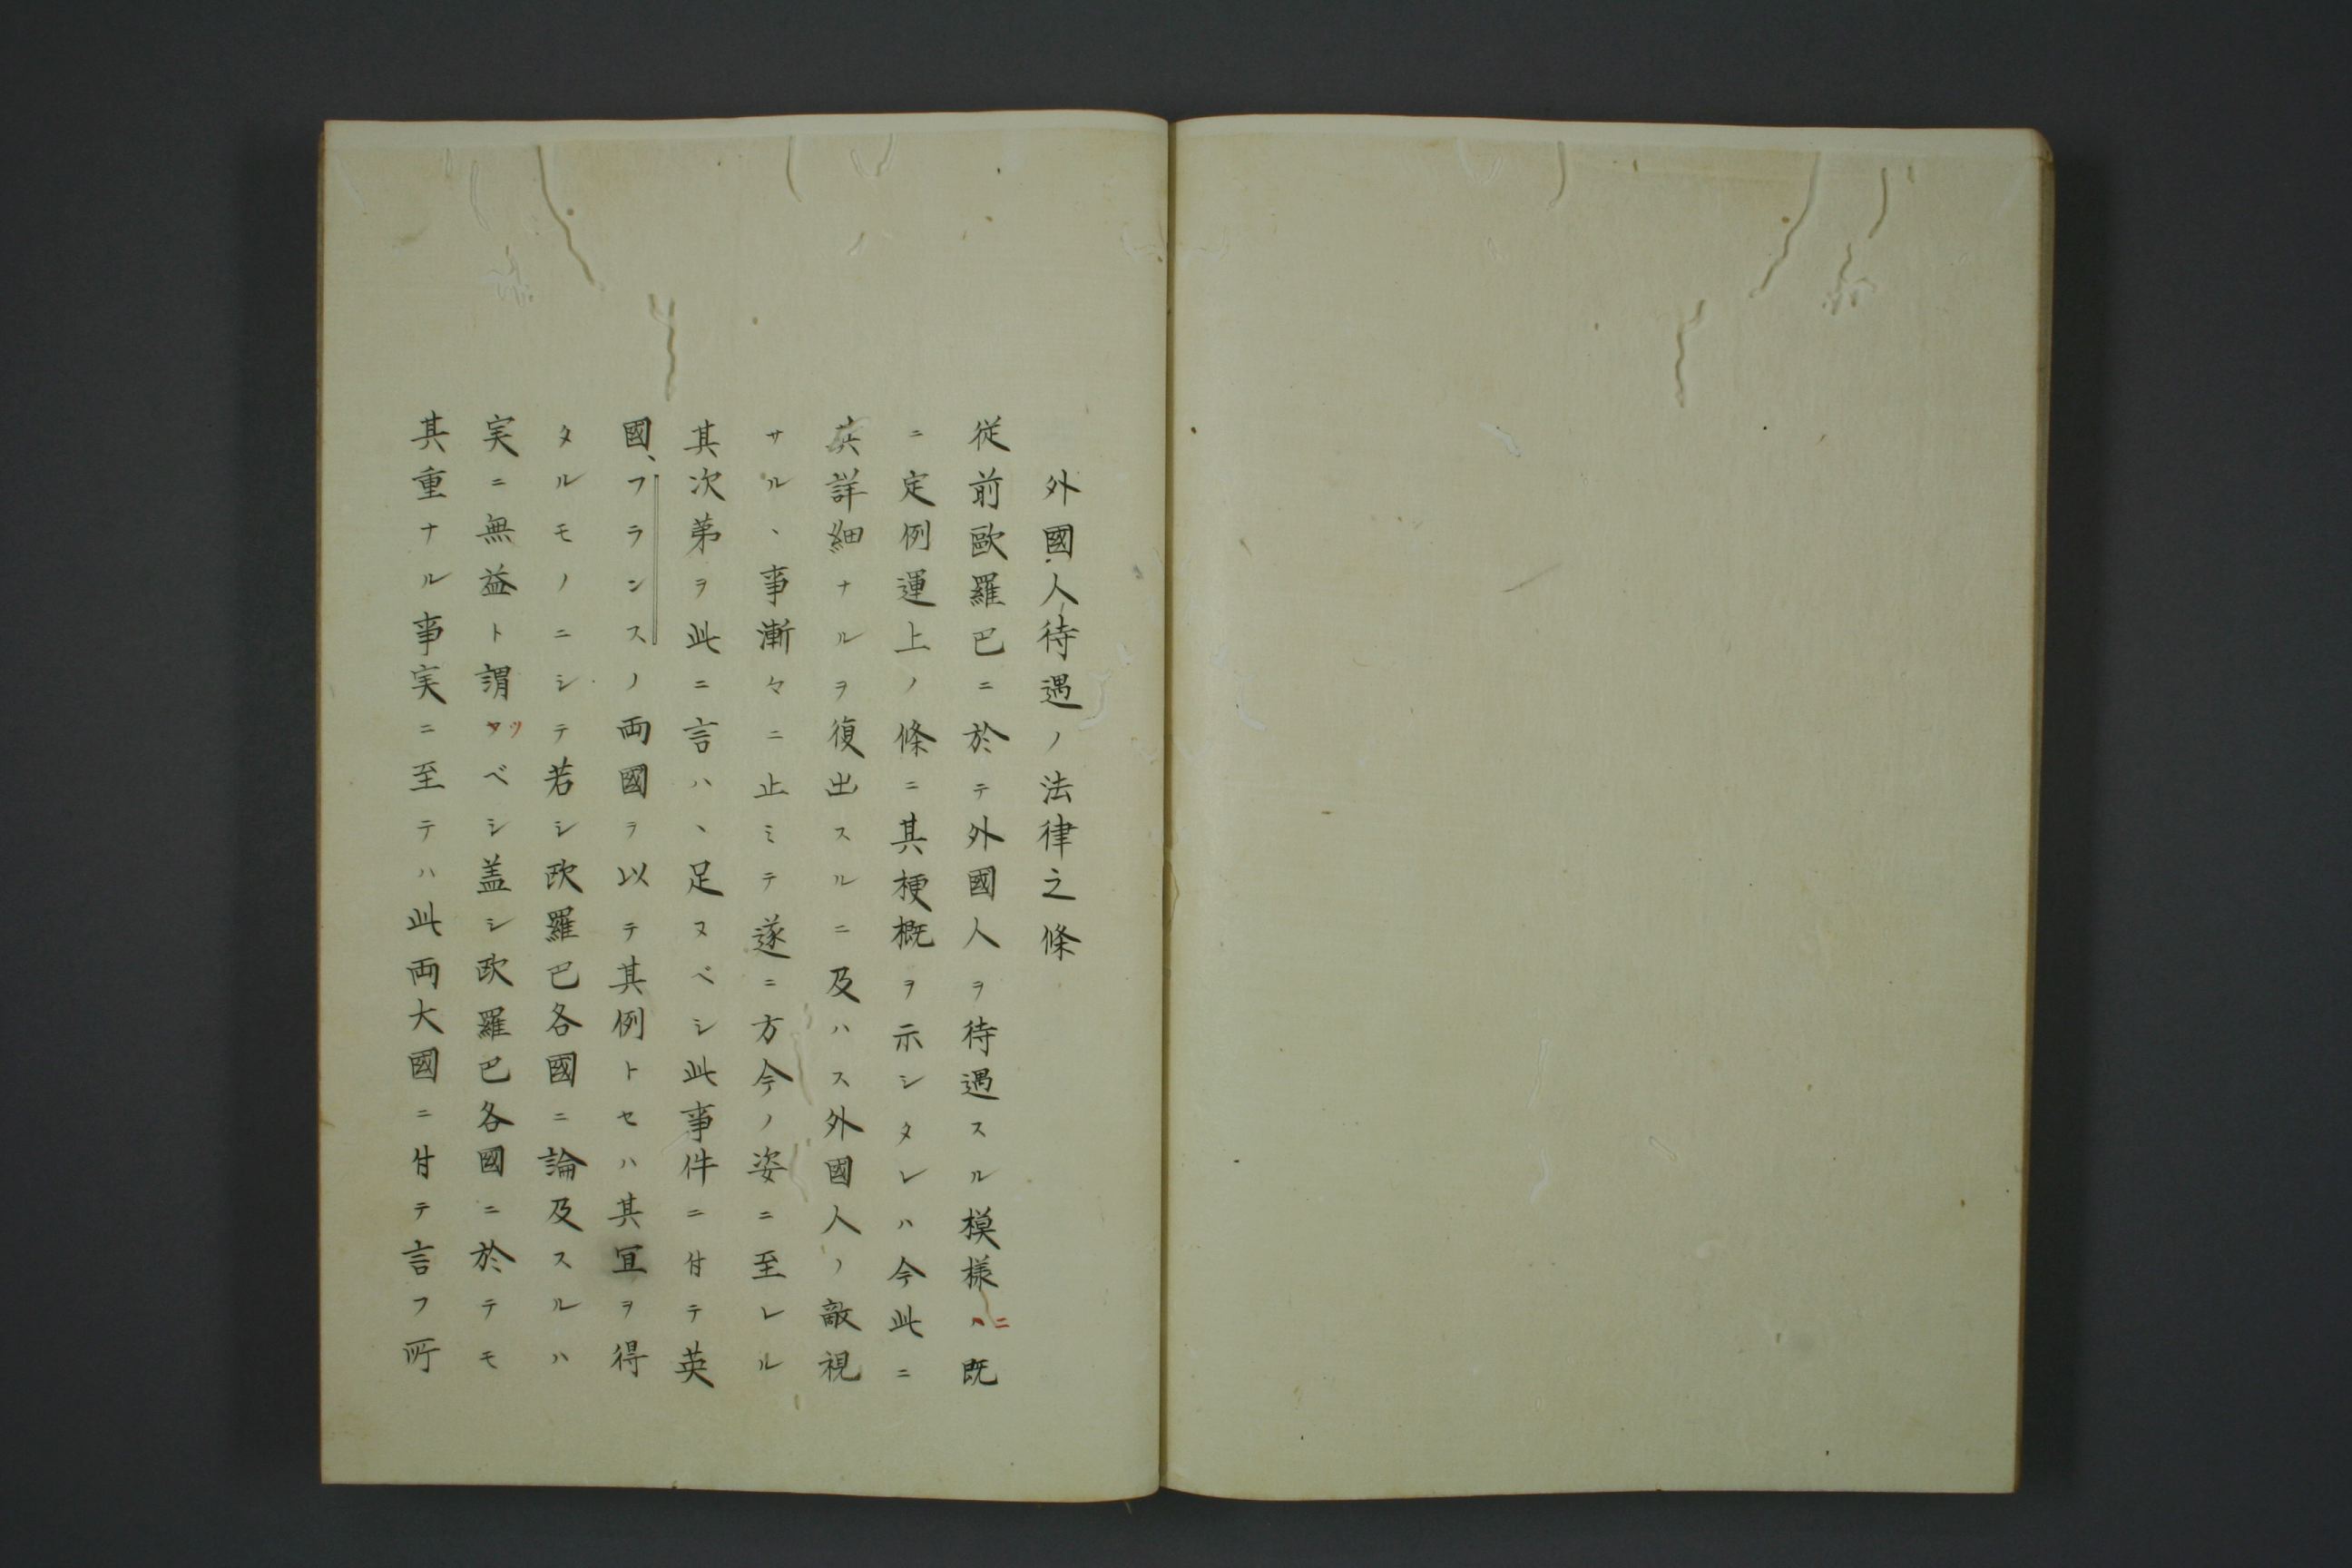 外國人待遇ノ法律之條
従前歐羅巴ニ於テ外國人ヲ待遇スル模様ハニ既
ニ定例運上ノ條ニ其梗概ヲ示シタレハ今此ニ
其詳細ナルヲ復出スルニ及ハス外國人ノ敵視
サルヽ事漸々ニ止ミテ遂ニ方今ノ姿ニ至レル
其次第ヲ此ニ言ハヽ足ヌベシ此事件ニ付テ英
國、フランスノ両國ヲ以テ其例トセハ其宜ヲ得
タルモノニシテ若シ欧羅巴各國ニ論及スルハ
実ニ無益ト謂ツベシ盖シ欧羅巴各國ニ於テモ
其重ナル事実ニ至テハ此両大國ニ付テ言フ所